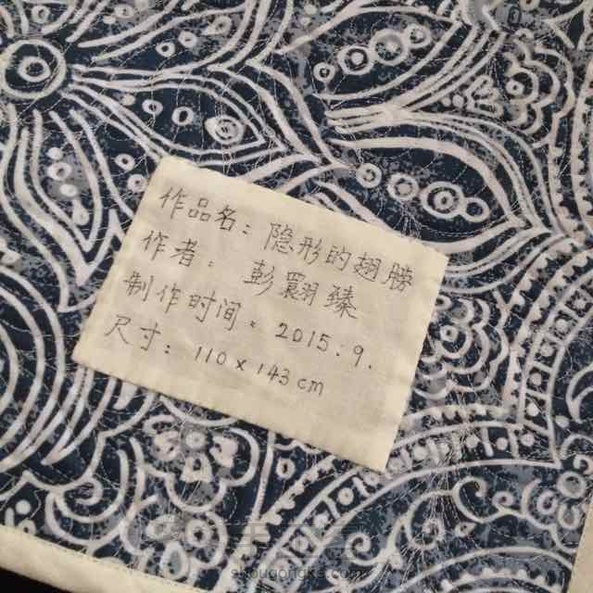 作品名：隐形的翅膀
作者：彭翾臻
制作时间：2015.9.
尺寸：110×143cm
shougongke.com